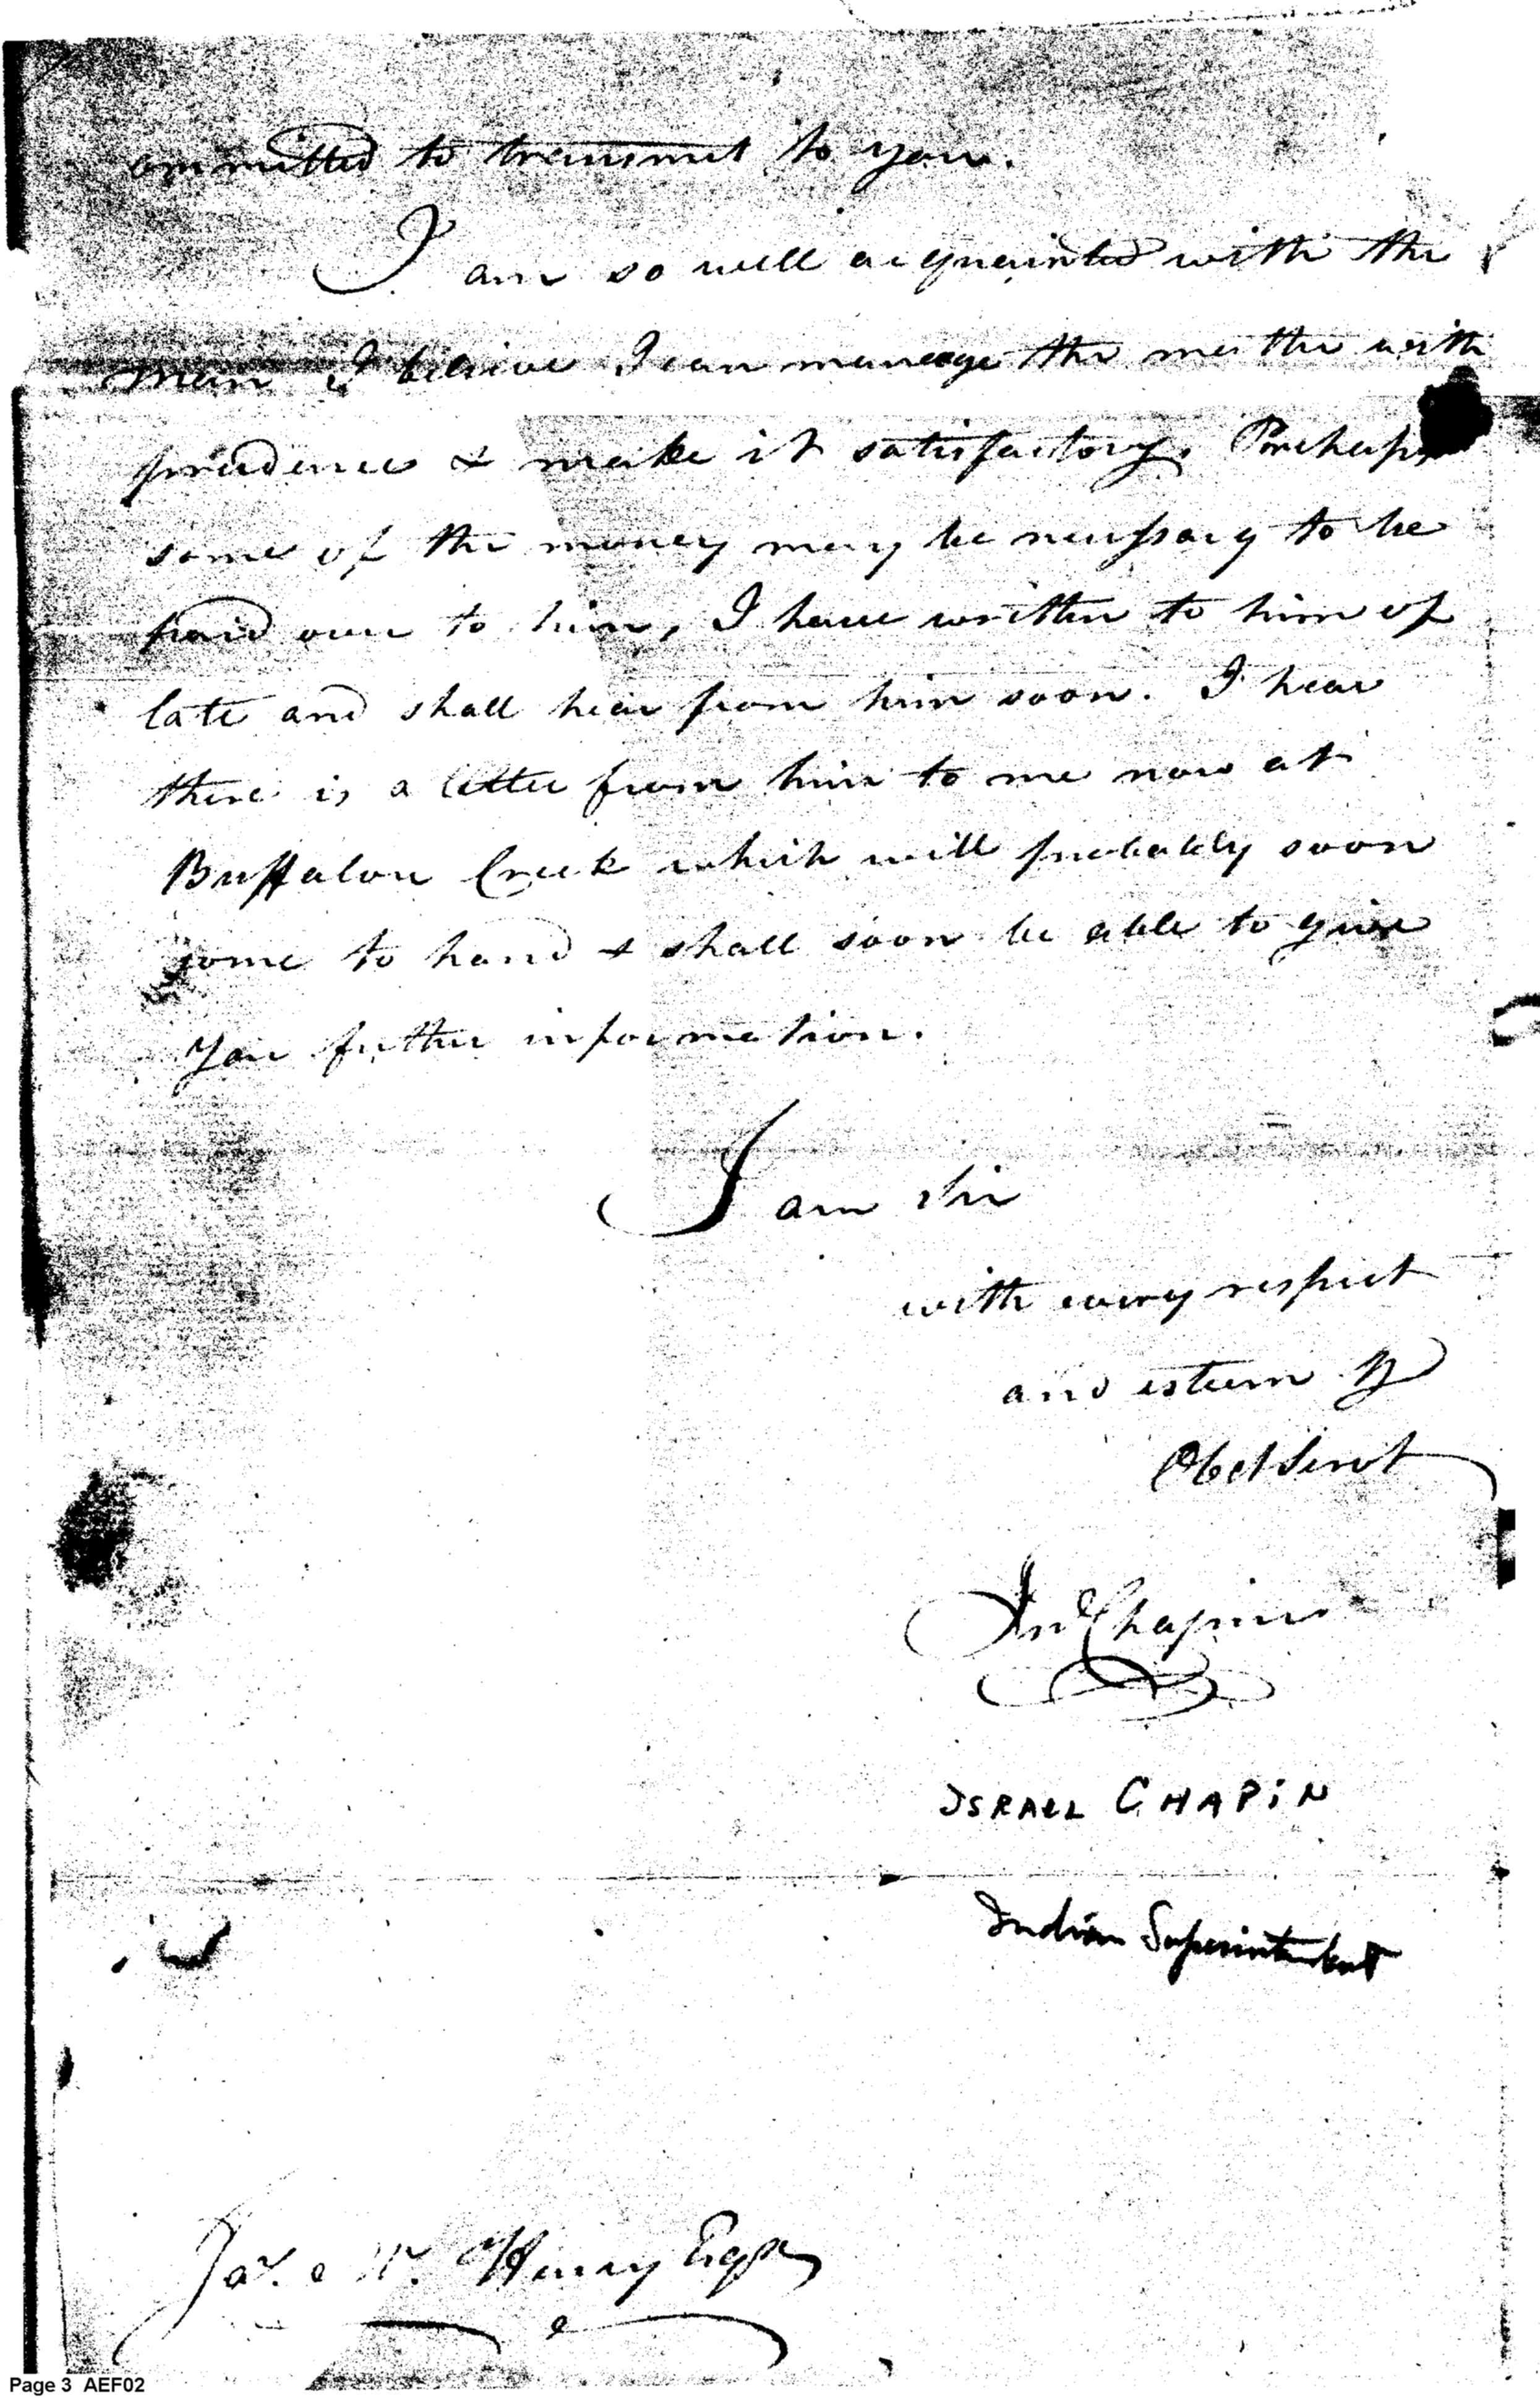 ommitted to transmit to you.
I am so well acquainted with the
man I believe I can manage the matter with
prudence & make it satisfactory. Perhaps
some of the money may be necessary to be
paid over to him, I have written to him of
late and shall hear from him soon. I hear
there is a letter from him to me now at
Buffaloe Creek which will probably soon
come to hand & shall soon be able to give
you futher information.
I am Sir
with every respect
and esteem yr
Obet Servt
Isrl Chapin
ISRAEL CHAPIN
Indian Superintendent
Jas. Mc. Henry Esqr
Page 3 AEF02